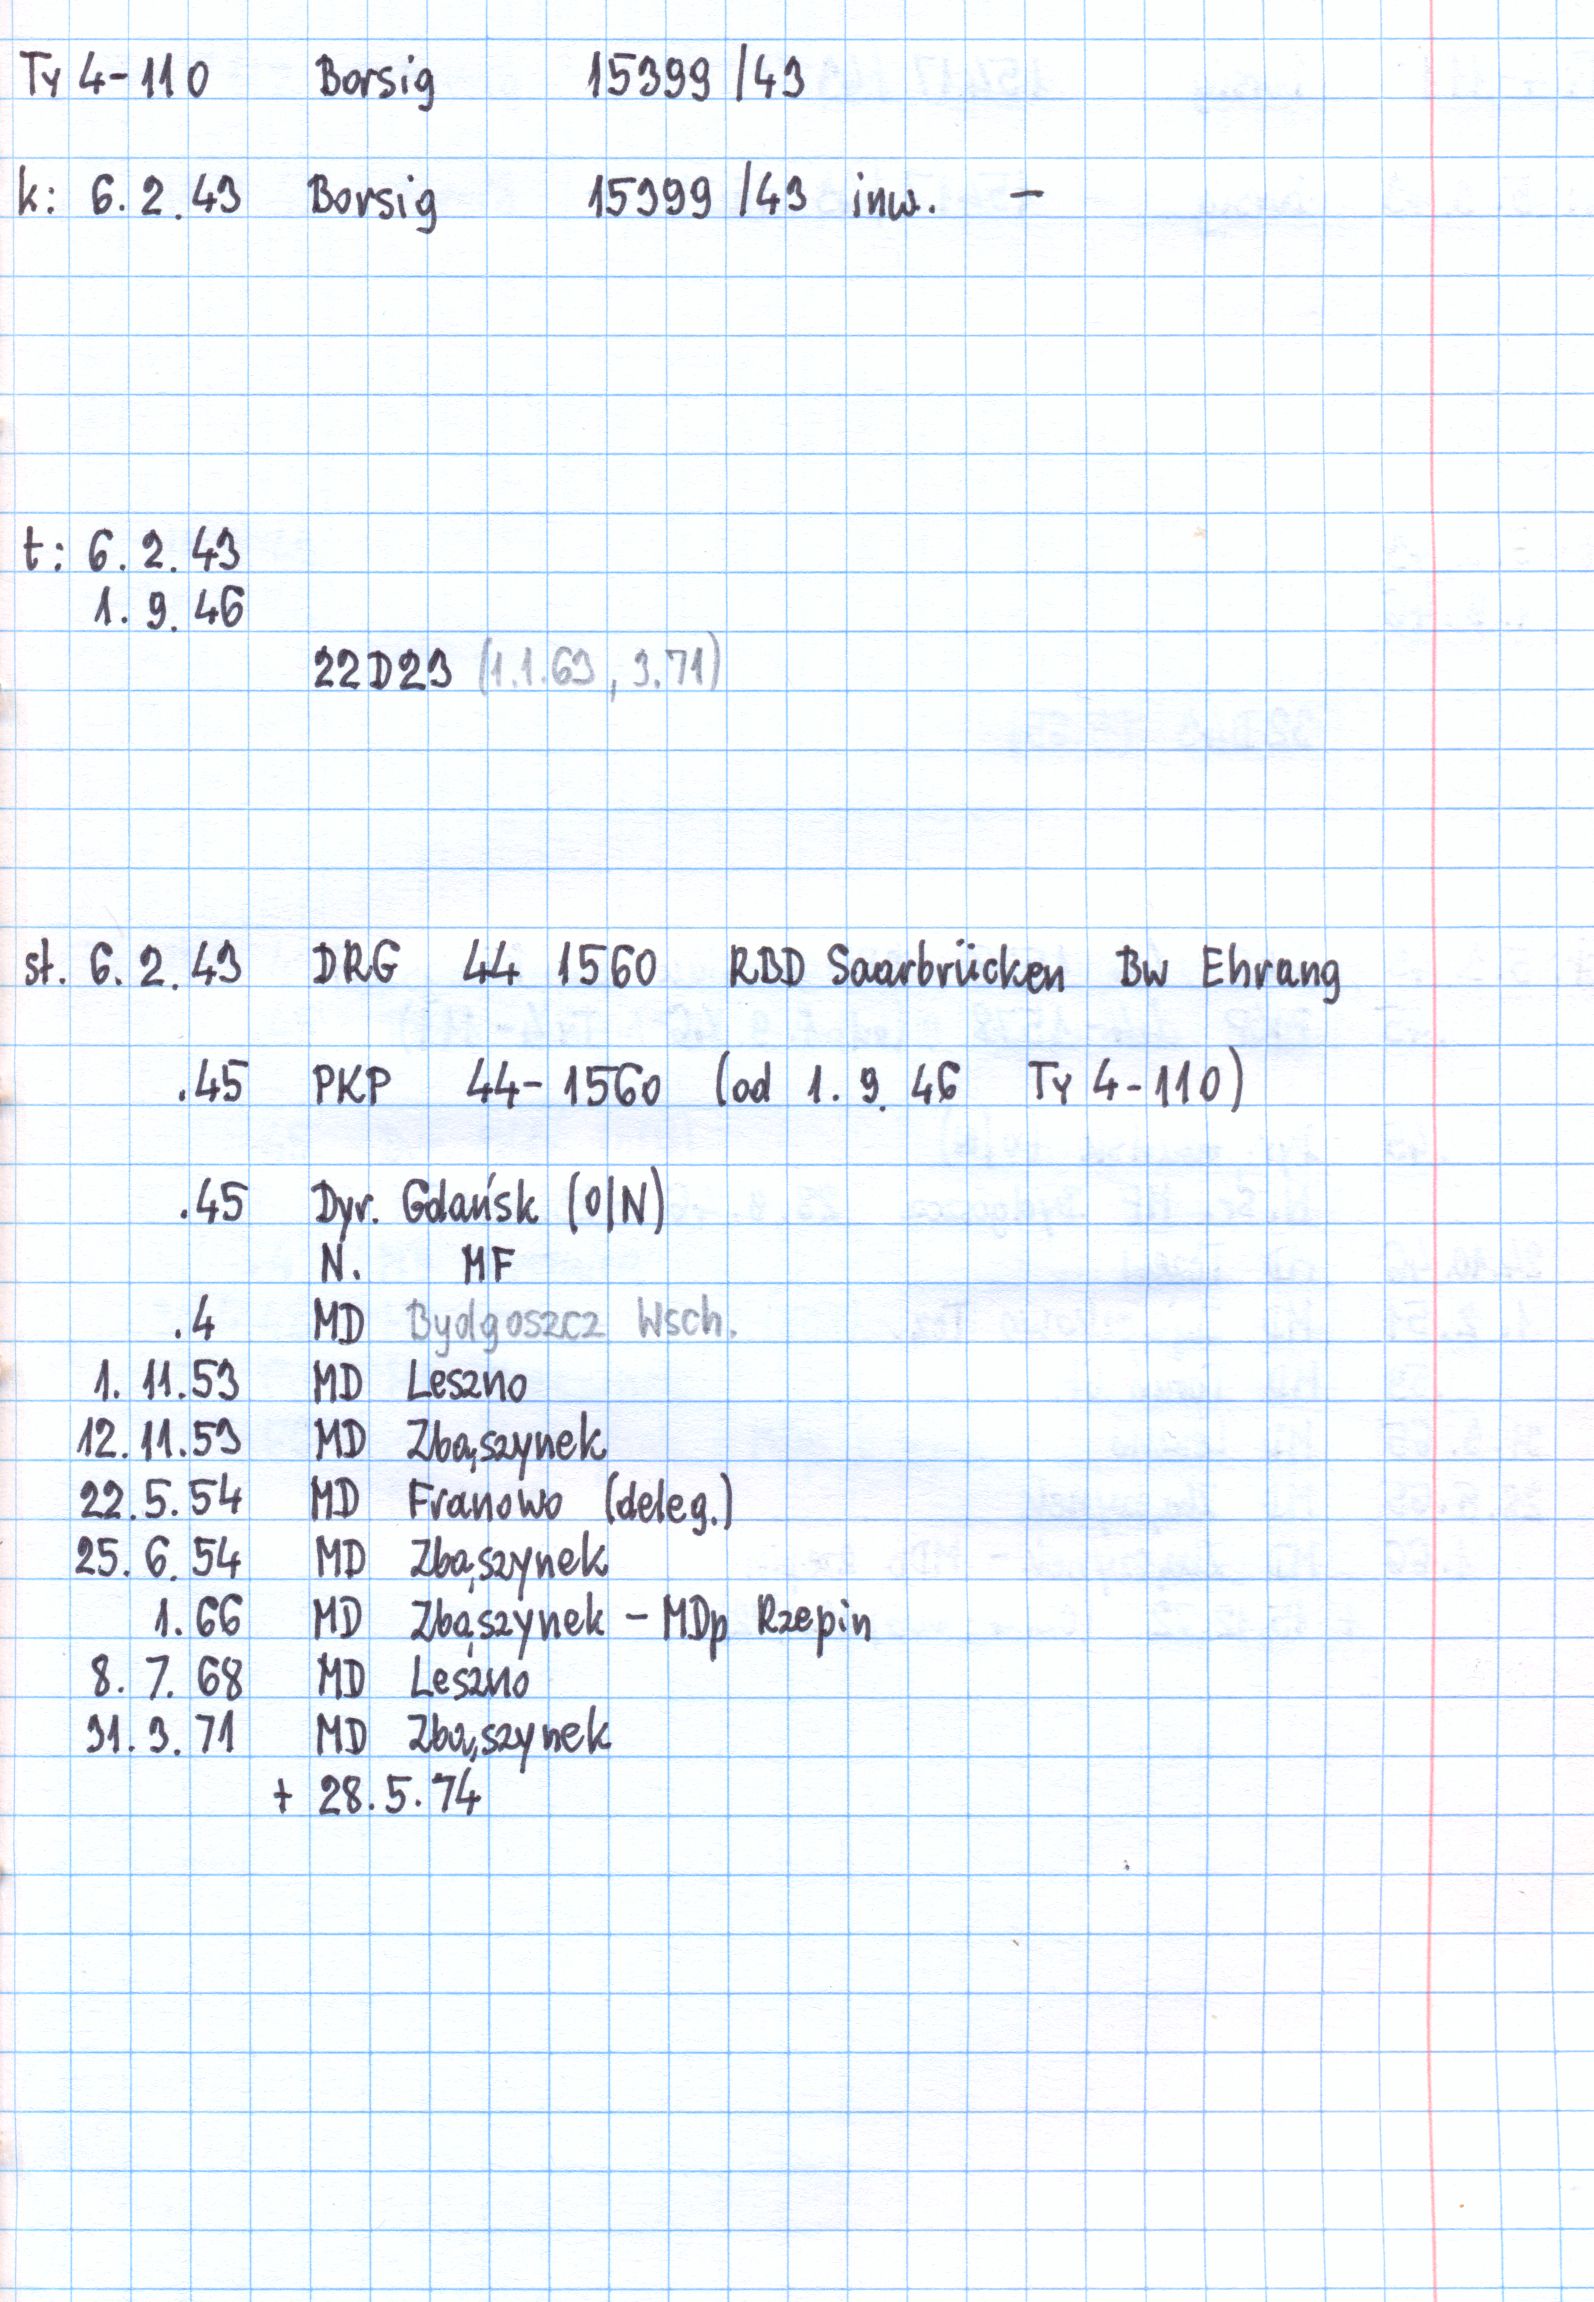 Ty 4-110 Borsig 15399/43
k: 6.2.43 Borsig 15399/43 inw. -
t: 6.2.43
1.9.46
22D23 (1.1.63, 3.71)
st. 6.2.43 DRG 44 1560 RBD Saarbrücken Bw Ehrang
.45 PKP 44-1560 (od 1.9.46 Ty 4-110)
.45 Dyr. Gdańsk (O/N)
N. MF
.4 MD Bydgoszcz Wsch.
1.11.53 MD Leszno
12.11.53 MD Zbąszynek
22.5.54 MD Franowo (deleg.)
25.6.54 MD Zbąszynek
1.66 MD Zbąszynek - MDp Rzepin
8.7.68 MD Leszno
31.3.71 MD Zbąszynek
+ 28.5.74